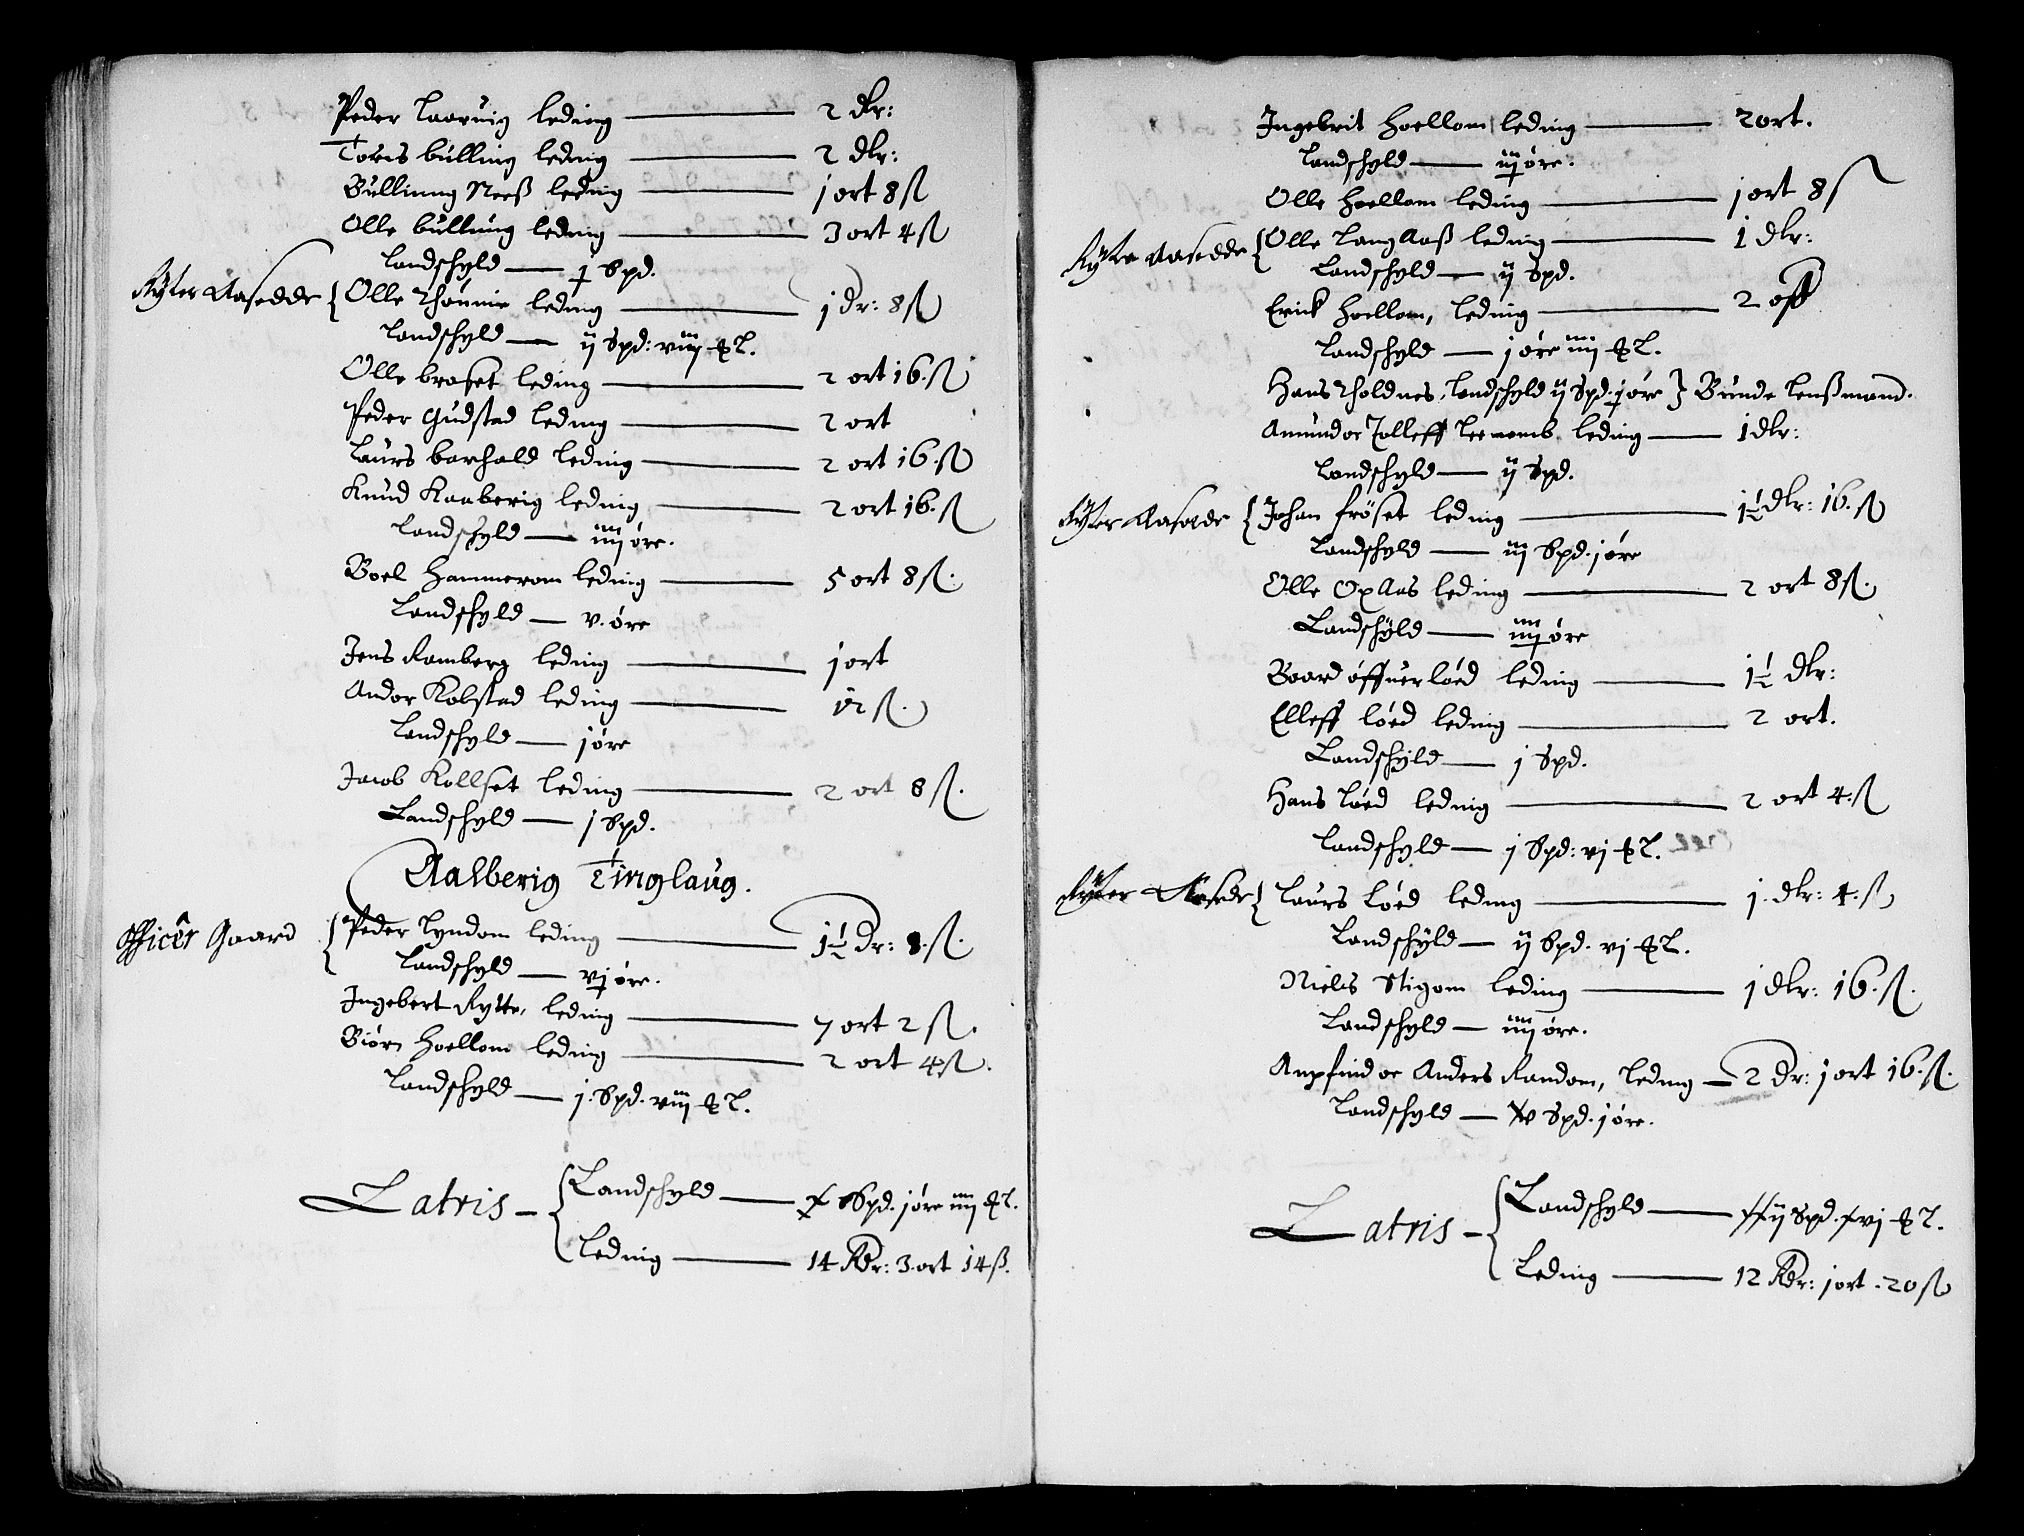 Peder Laaruig leding — 2 dlr:
Tøris bulling leding — 2 dlr:
Bullinng Neeß leding — j ort 8 ß
Olle bullung leding — 3 ort 4 ß
Landschyld — j Spd.
Ryter Aasedde { Olle Rhønnie leding — j Dr: 8 ß
Landschyld — ij Spd: viij ꝣl.
Olle braset leding — 2 ort 16. ß
Peder Gudstad leding — 2 ort
Laurs barhald leding — 2 ort 16. ß
Knud Kaaberig leding — 2 ort 16. ß
Landschyld — iiij øre.
Boel Hammerom leding — 5 ort 8 ß.
Landschyld — v. øre
Jens Ramberg leding — j ort
Ander Kolstad leding — 12 ß.
Landschyld — j øre
Jacob Kollset leding — 2 ort 8 ß.
Landschyld — j Spd.
Aalberig Tinglaug.
Officer Gaard { Peder Lyndom leding — 1½ Dr: 8. ß.
Landschyld — vj øre.
Ingebert Rytter, leding — 7 ort 2 ß.
Biørn Hoellom leding — 2 ort 4 ß.
Landschyld — j. Spd. viij ꝣl.
Latris — { Landschyld — x Spd. j øre iiij ꝣl.
Leding — 14 Rdr: 3. ort 14 ß.
Ingebrit Hoellom leding — 2 ort.
Landschyld — iij øre.
Olle Hoellom leding — j ort 8 ß
Ryter Aasedde { Olle Lang Aaß leding — 1 dlr:
Landschyld — ij Spd.
Erick Hoellom, leding — 2 ort
Landschyld — j øre iiij ꝣl.
Hans Rholdnes, Landschyld ij Spd. j øre } Bunde Lenßmand.
Amund oc Tolleff leding — 1 dlr:
Landschyld — ij Spd.
Ryter Aasedde { Johan frøset leding — 1½ dlr: 16. ß
Landschyld — iij Spd. j øre
Olle Opaas leding — 2 ort 8 ß.
Landschyld — iiij øre
Baard øffuerløed leding — 1½ dlr:
Elleff løed leding — 2 ort.
Landschyld — j Spd.
Hans løed leding — 2 ort 4. ß
Landschyld — j Spd: vj ꝣl.
Ryter Aasede { Laurs Løed leding — j. dlr: 4. ß
Landschyld — ij Spd. vj ꝣl.
Niels Stigom leding — j dlr: 16. ß.
Landschyld — iiij øre.
Anpfind oc Anders Random, leding — 2 Dr: j ort 16. ß.
Landschyld — v Spd. j øre.
Latris — { Landschyld — xxij Spd. xvj ꝣl.
Leding — 12 Rdr: j ort. 20 ß